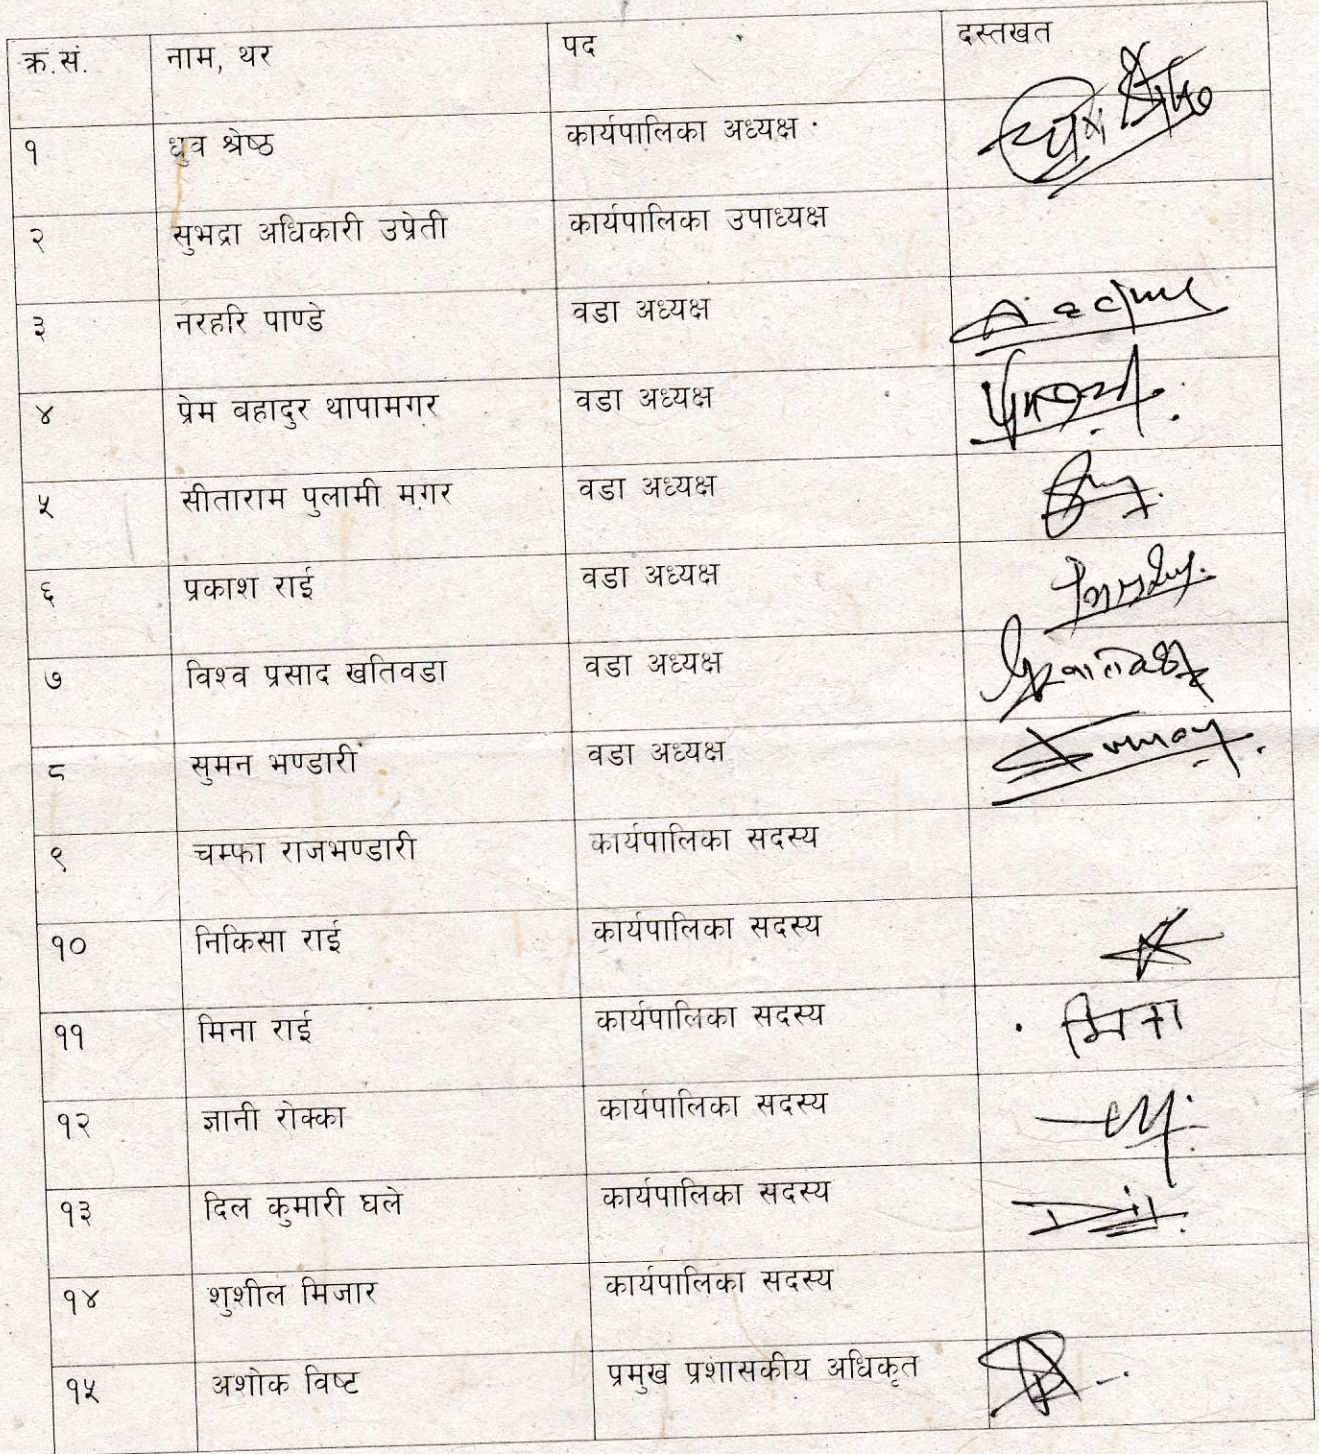 क्र.सं. नाम, थर पद दस्तखत
१ ध्रुव श्रेष्ठ कार्यपालिका अध्यक्ष
२ सुभद्रा अधिकारी उप्रेती कार्यपालिका उपाध्यक्ष
३ नरहरि पाण्डे वडा अध्यक्ष
४ प्रेम वहादुर थापामगर वडा अध्यक्ष
५ सीताराम पुलामी मगर वडा अध्यक्ष
६ प्रकाश राई वडा अध्यक्ष
७ विश्व प्रसाद खतिवडा वडा अध्यक्ष
८ सुमन भण्डारी वडा अध्यक्ष
९ चम्फा राजभण्डारी कार्यपालिका सदस्य
१० निकिसा राई कार्यपालिका सदस्य
११ मिना राई कार्यपालिका सदस्य मिना
१२ ज्ञानी रोक्का कार्यपालिका सदस्य
१३ दिल कुमारी घले कार्यपालिका सदस्य
१४ शुशील मिजार कार्यपालिका सदस्य
१५ अशोक विष्ट प्रमुख प्रशासकीय अधिकृत